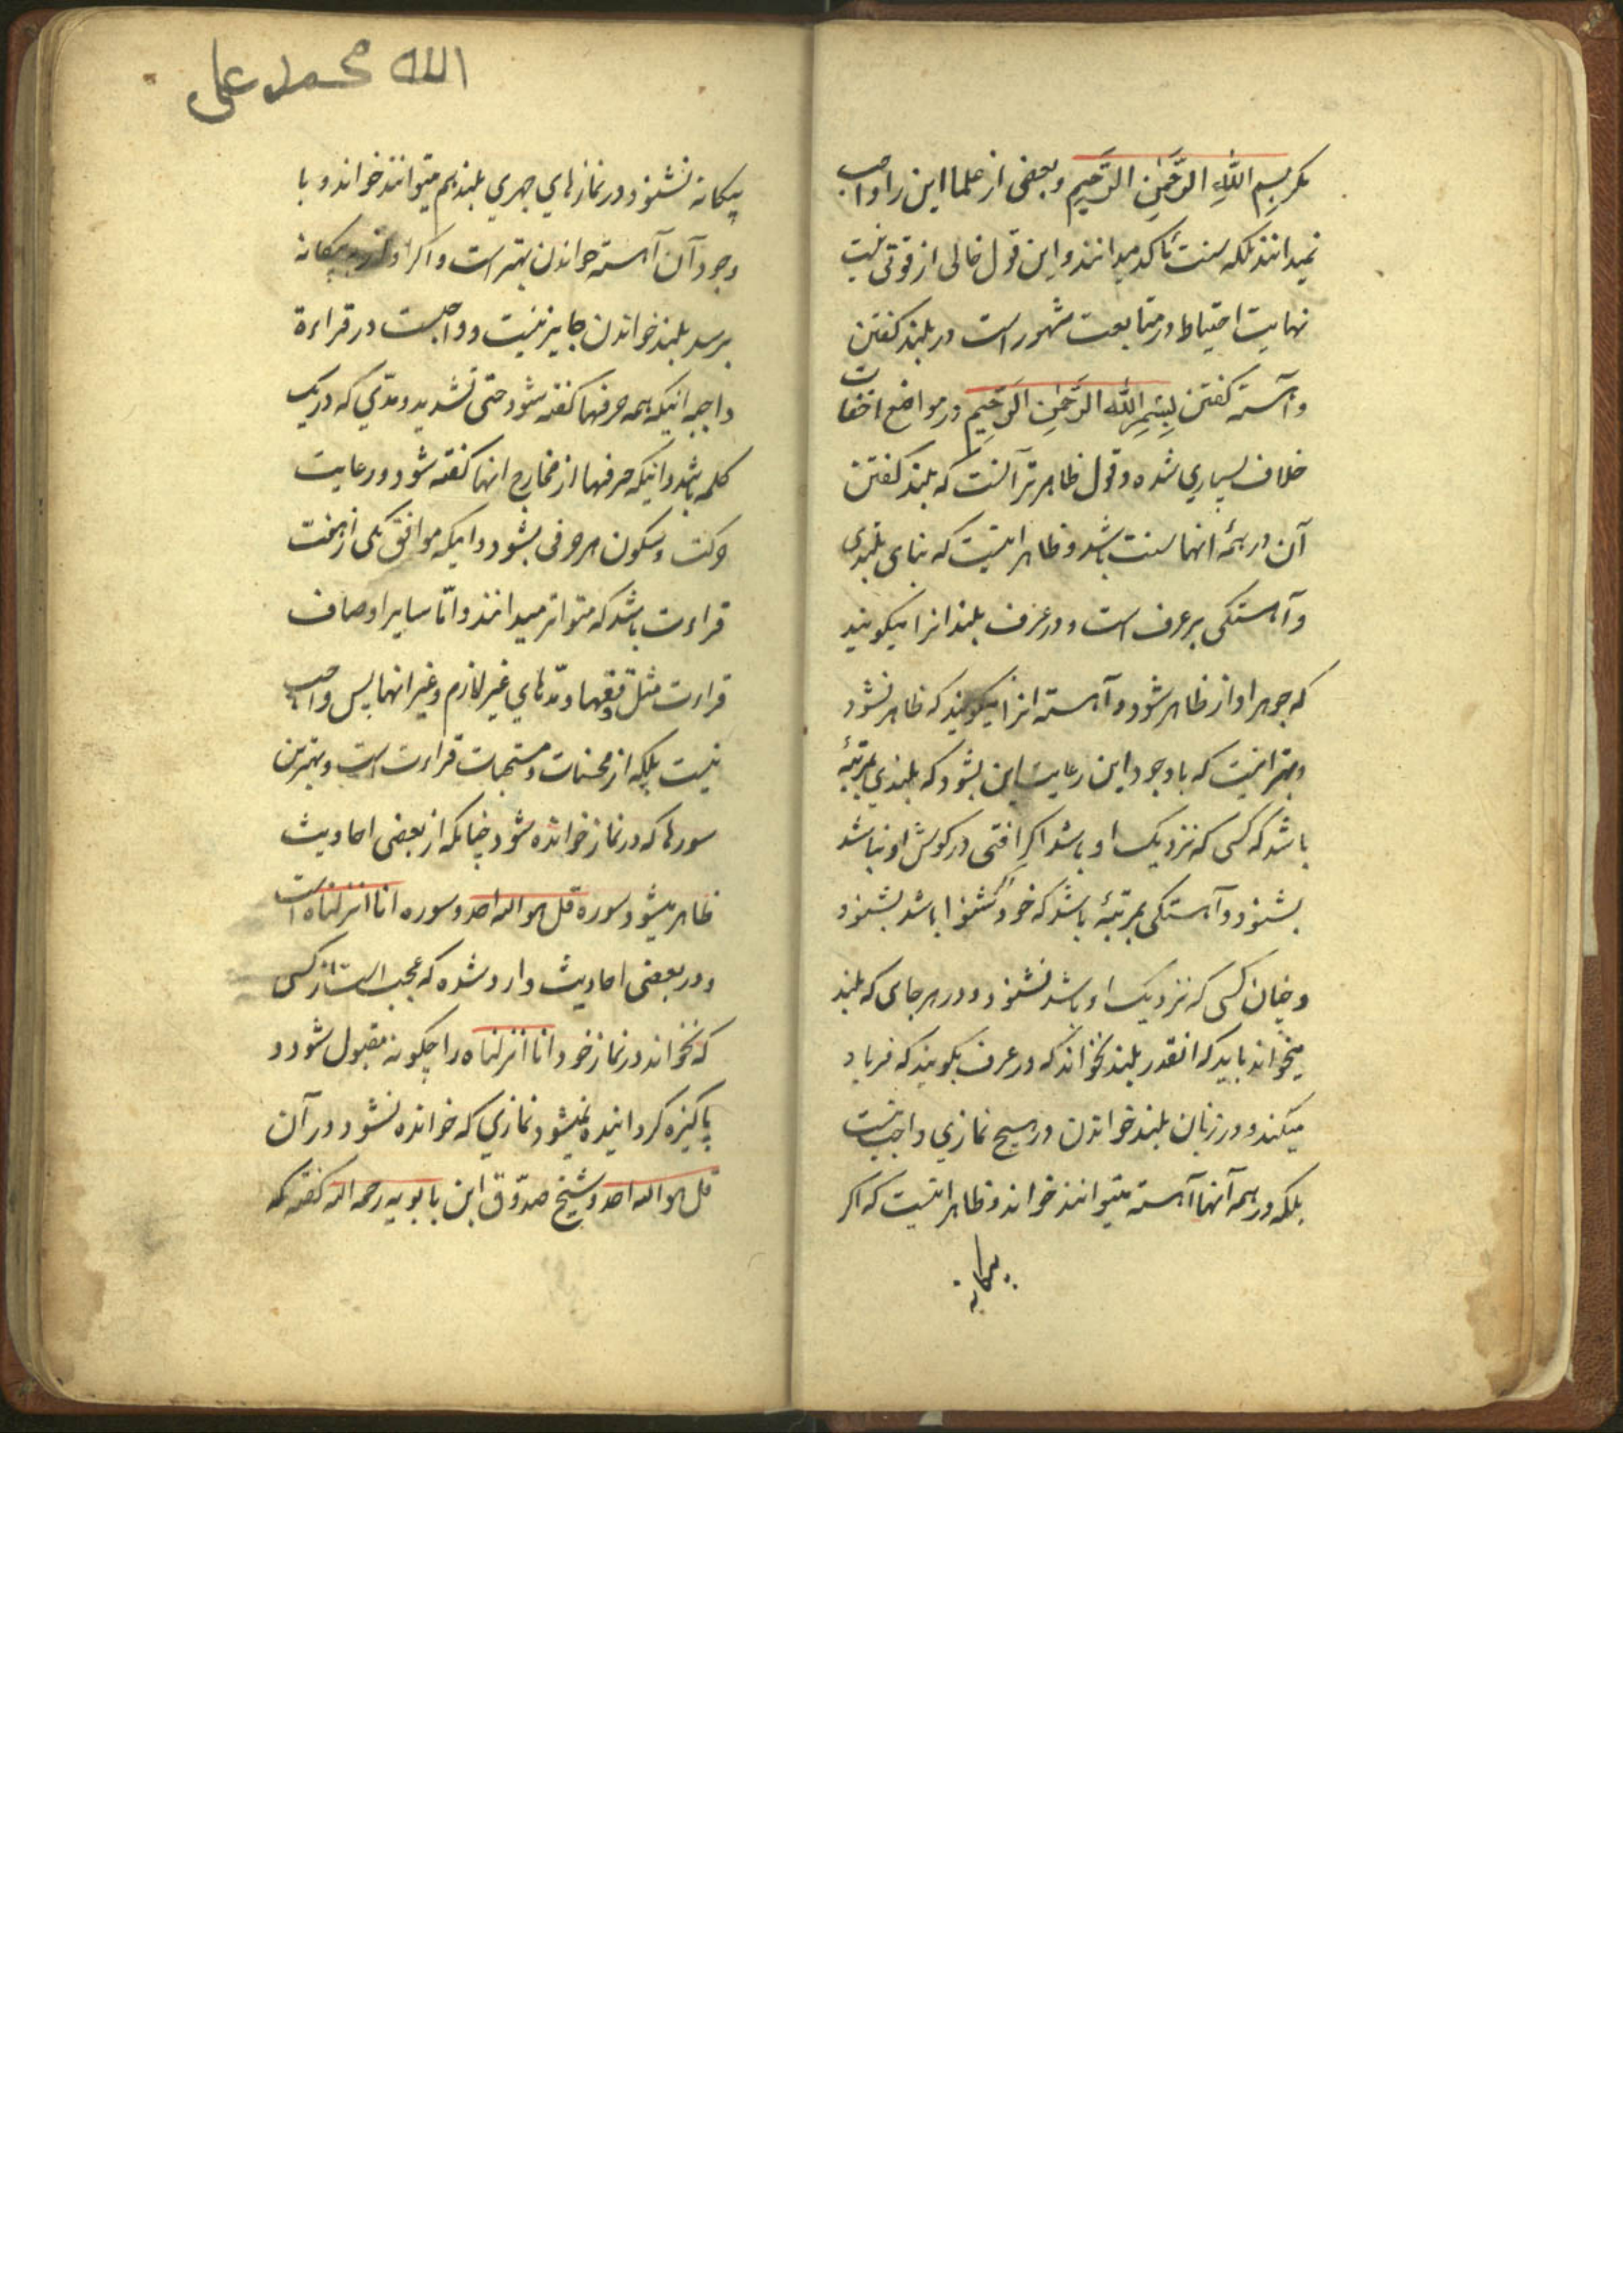 مکر بِسمِ اللَّهِ الرَّحمٰنِ الرَّحیمِ و بعضی از علما این را واجب
نمیدانند بلکه سنت مؤکد میدانند و این قول خالی از قوتی نیست
نهایت احتیاط در متابعت مشهور است در بلند کفتن
و آهسته کفتن بِسمِ اللَّهِ الرَّحمٰنِ الرَّحیمِ در مواضع اخفات
خلاف بسیاری شده و قول ظاهرتر آنست که بلند کفتن
آن در همهٔ انها سنت باشد و ظاهر اینست که بنای بلندی
و آهستکی بر عرف است و در عرف بلند انرا میکویند
که جوهر اواز ظاهر شود و آهسته انرا میکویند که ظاهر نشود
و بهتر اینست که با وجود این رعایت این بشود که بلندی بمرتبهٔ
باشد که کسی که نزدیک او باشد اکر افتی در کوش او نباشد
بشنود و آهستکی بمرتبهٔ باشد که خود اکر شنوا باشد بشنود
و چنان کسی که نزدیک او باشد نشنود و در هر جای که بلند
میخواند باید که انقدر بلند نخواند که در عرف بکویند که فریاد
میکند و در زنان بلند خواندن در هیچ نمازی واجب نیست
بلکه در همه آنها آهسته میتوانند خواند و ظاهر اینست که اکر
بیکانه
الله محمد علی
بیکانه نشنود در نمازهای جهری بلند هم میتوانند خواند و با
وجود آن آهسته خواندن بهتر است و اکر اواز به بیکانه
برسد بلند خواندن جایز نیست و واجبست در قراءة
واجبه اینکه همه حرفها کفته شود حتی تشدید و مدّی که در یک
کلمه باشد و اینکه حرفها از مخارج انها کفته شود و رعایت
حرکت و سکون هر حرفی بشود و اینکه موافق یکی از هفت
قراءت باشد که متواتر میدانند و امّا سایر اوصاف
قراءت مثل وقفها و مدّهای غیر لازم و غیر انها پس واجب
نیست بلکه از محسنات و مستحبات قراءت است و بهترین
سورها که در نماز خوانده شود چنانکه از بعضی احادیث
ظاهر میشود سوره قل هو الله احد و سوره انا انزلناه است
و در بعضی احادیث وارد شده که عجب است از کسی
که نخواند در نماز خود انا انزلناه را چکونه مقبول شود و
پاکیزه کردانیده نمیشود نمازی که خوانده نشود در آن
قل هو الله احد و شیخ صدّوق ابن بابویه رحمه الله کفته که